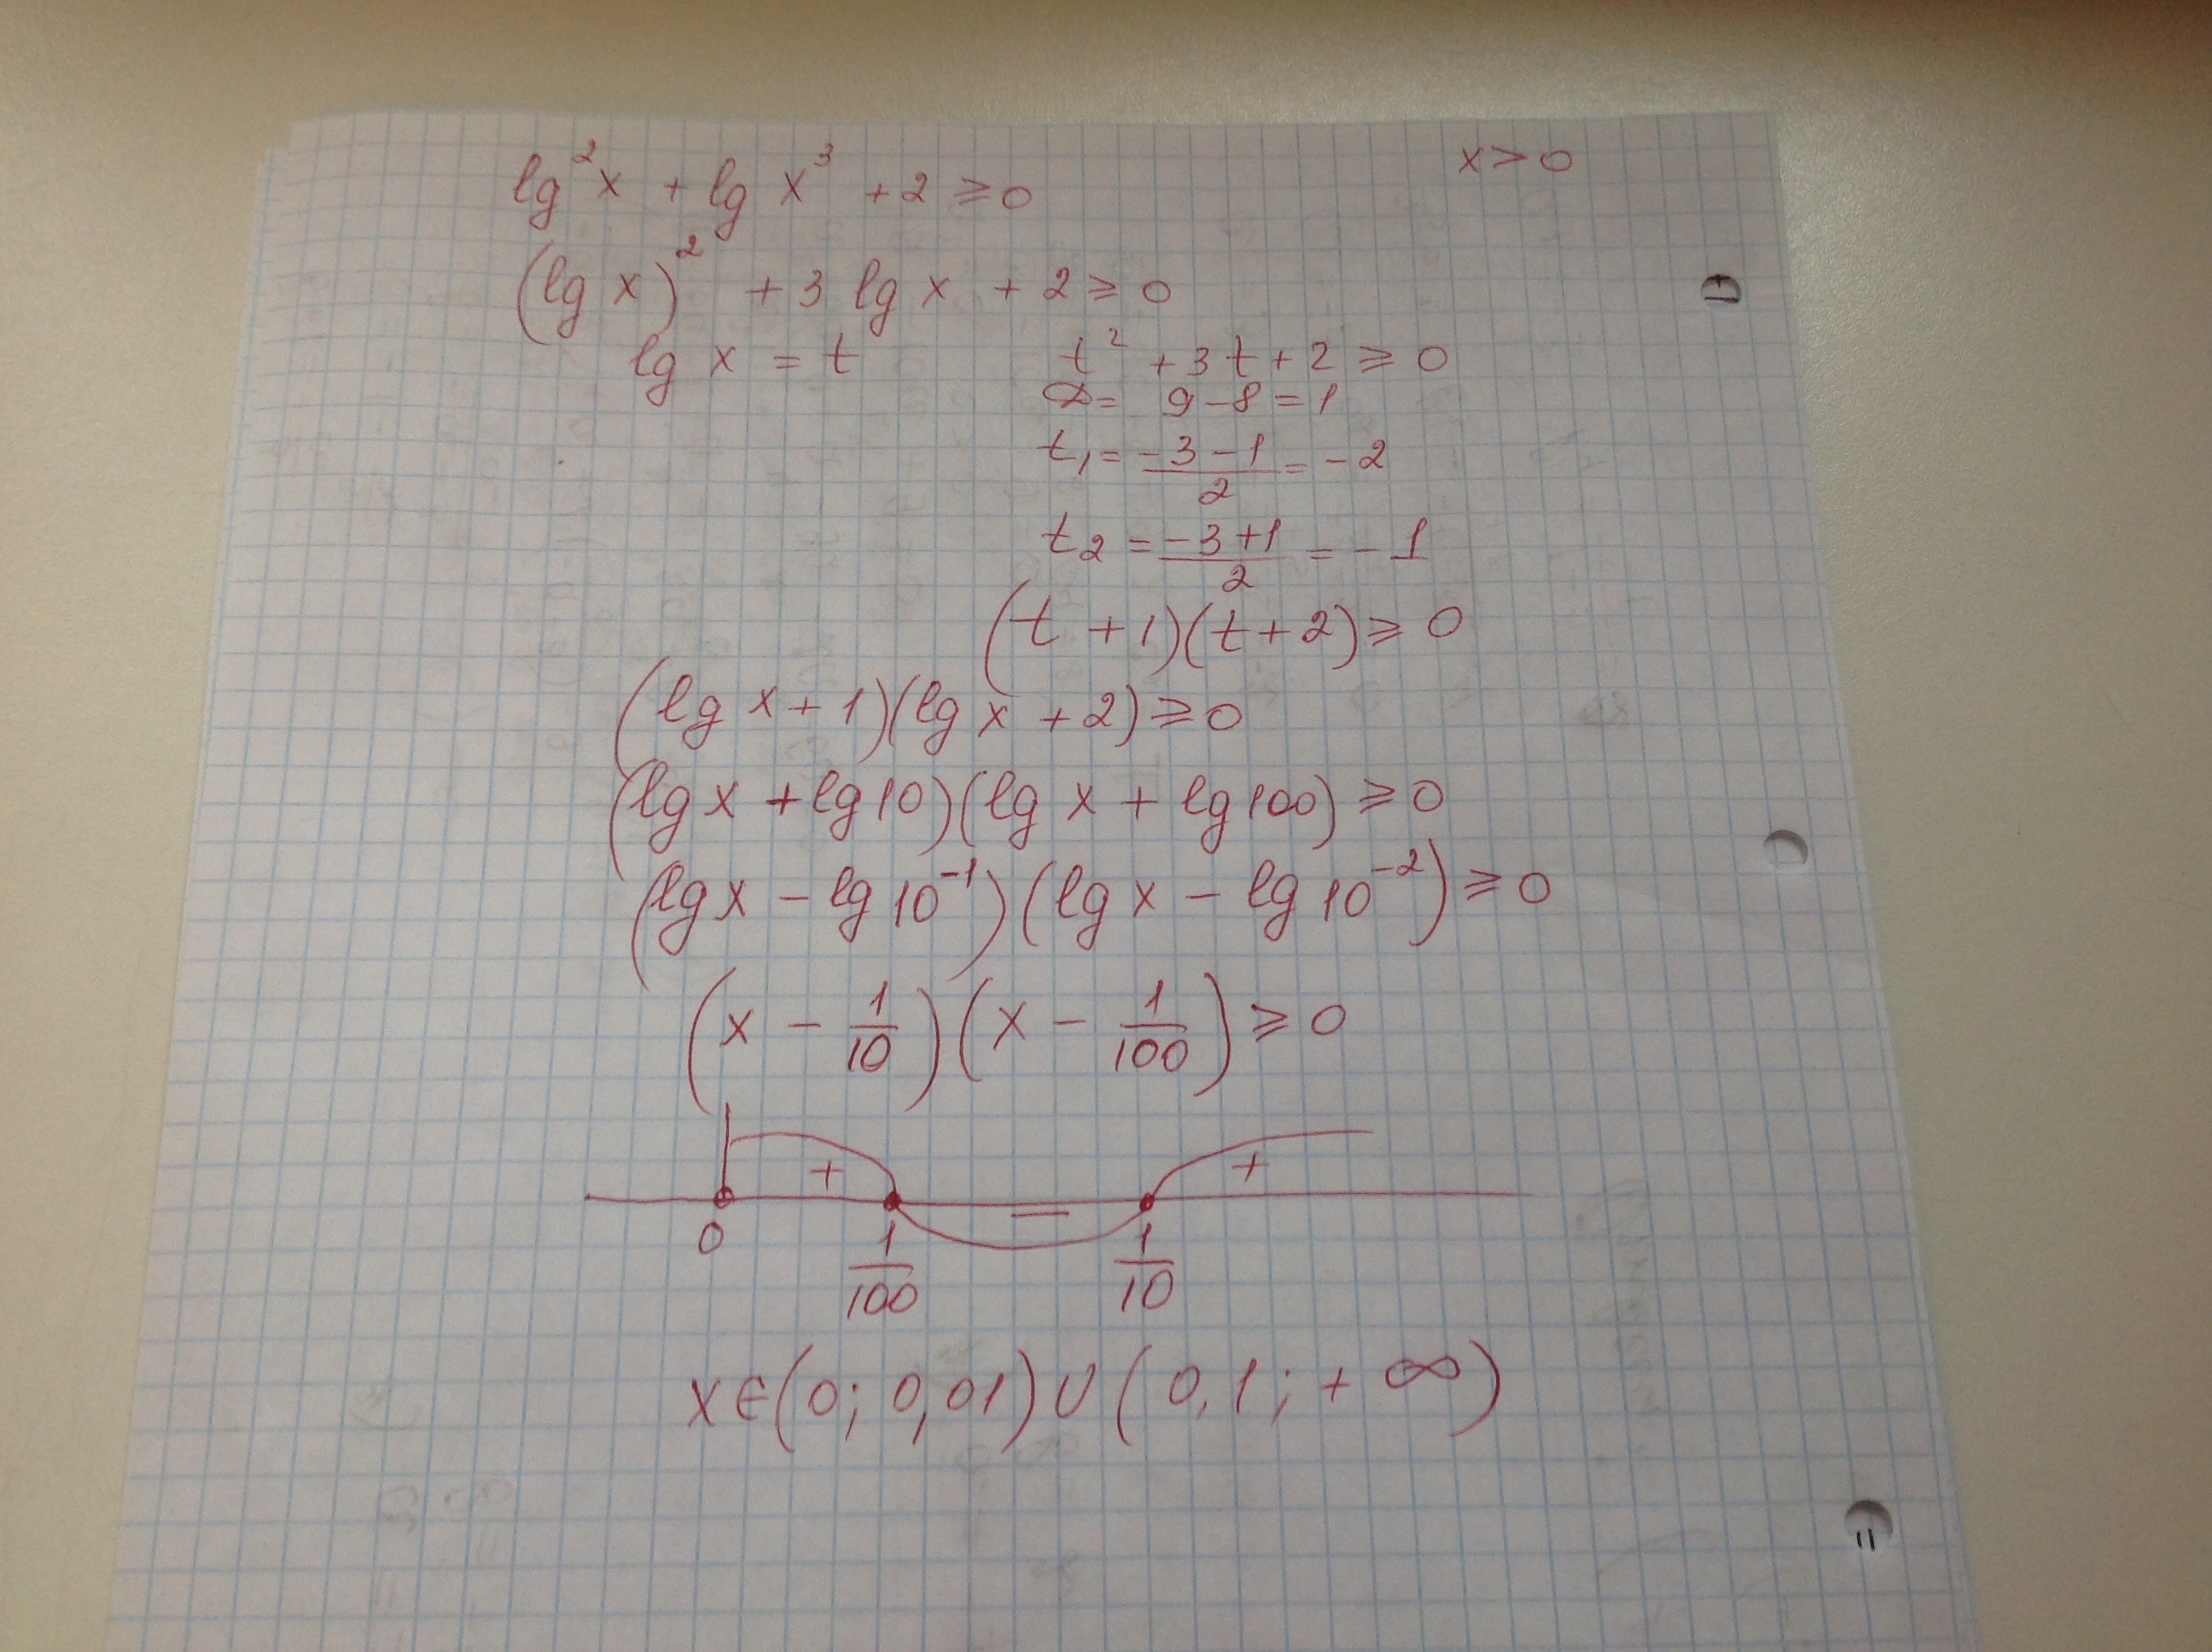 lg²x + lg x³ + 2 ⩾ 0
x > 0
(lg x)² + 3 lg x + 2 ⩾ 0
lg x = t
t² + 3t + 2 ⩾ 0
D = 9 − 8 = 1
t₁ = (−3 − 1)/2 = −2
t₂ = (−3 + 1)/2 = −1
(t + 1)(t + 2) ⩾ 0
(lg x + 1)(lg x + 2) ⩾ 0
(lg x + lg 10)(lg x + lg 100) ⩾ 0
(lg x − lg 10⁻¹)(lg x − lg 10⁻²) ⩾ 0
(x − 1/10)(x − 1/100) ⩾ 0
+ − +
0 1/100 1/10
x ∈ (0; 0,01) ∪ (0,1; + ∞)